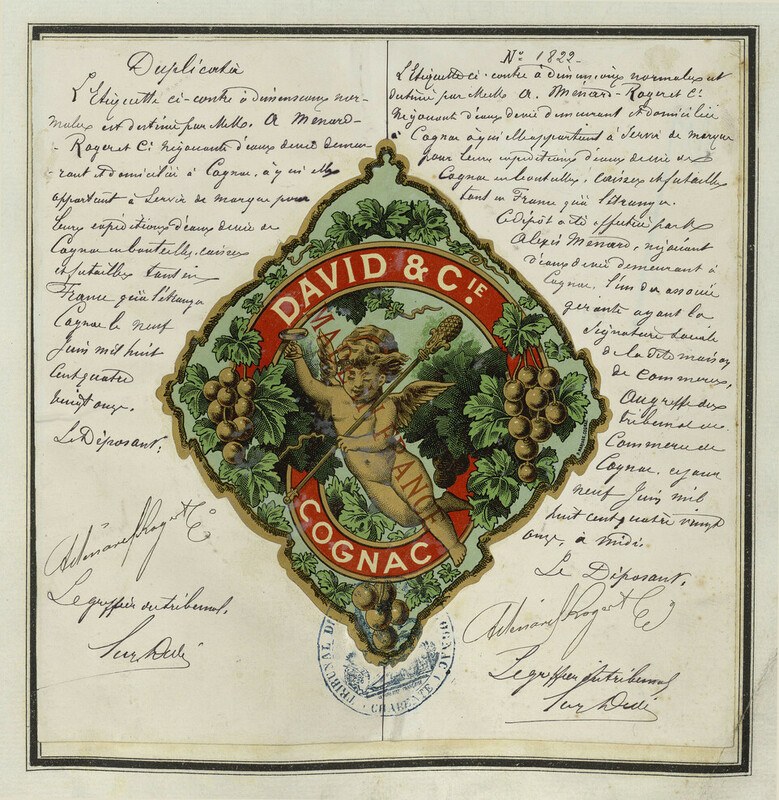 Duplicata
L'Etiquette ci-contre à dimensions nor-
males est destinée par MM. A Menard-
- Royer et Cⁱ négociants d'eaux de vie demeu-
rant et domiciliés à Cognac, à qui elle
appartient à Servir de marque pour
leurs expéditions d'eaux de vie de
Cognac en bouteilles, caisses
et futailles tant en
France qu'à l'étranger
Cognac le neuf
Juin mil huit
cent quatre
vingt onze.
Le Déposant,
Le greffier du tribunal,
Nº 1822
L'Etiquette ci-contre à dimensions normales est
destinée par MM. A. Menard-Royer et Cⁱ
négociants d'eaux de vie demeurant et domiciliés
à Cognac à qui elle appartient à Servir de marque
pour leurs expéditions d'eaux de vie de
Cognac en bouteilles, caisses et futailles
tant en France qu'à l'étranger.
Ce Dépôt a été effectué par M.
Alexis Ménard, négociant
d'eaux de vie demeurant à
Cognac. l'un des associés
gérants ayant la
Signature sociale
de la dite maison
de commerce,
au greffe du
tribunal de
Commerce de
Cognac. ce jour
neuf Juin mil
huit cent quatre vingt
onze, à midi.
Le Déposant,
Le greffier du tribunal
DAVID & CIE
COGNAC
TRIBUNAL DE
COGNAC
CHARENTE